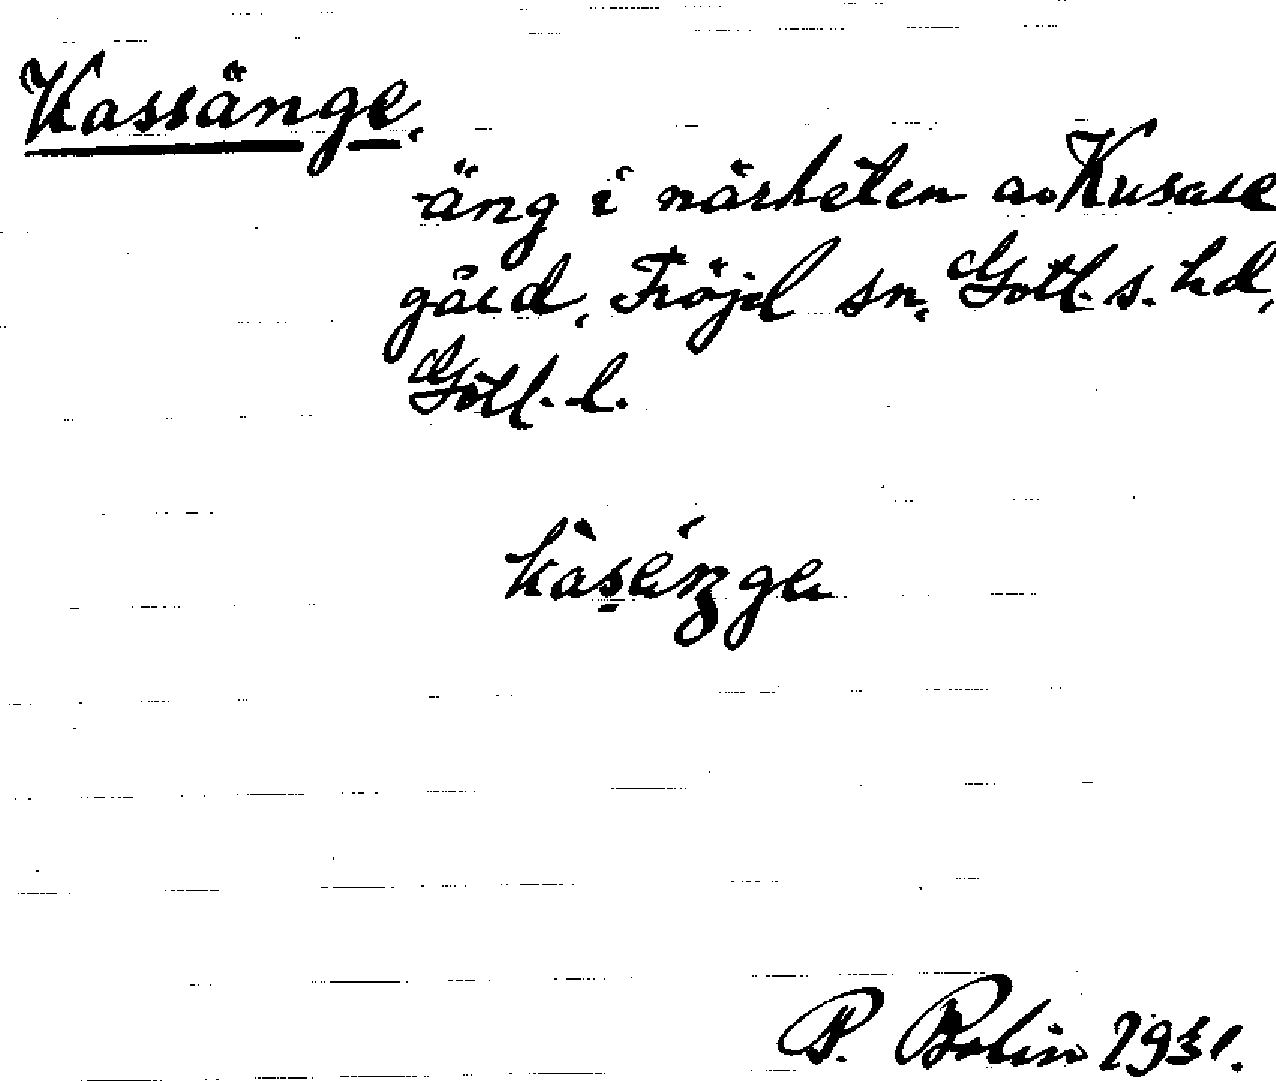 Kassänge.
äng i närheten av Kusare
gård, Fröjel sn, Gotl. s. hd,
Gotl. l.
kàsénge
P. Bolin 1931.